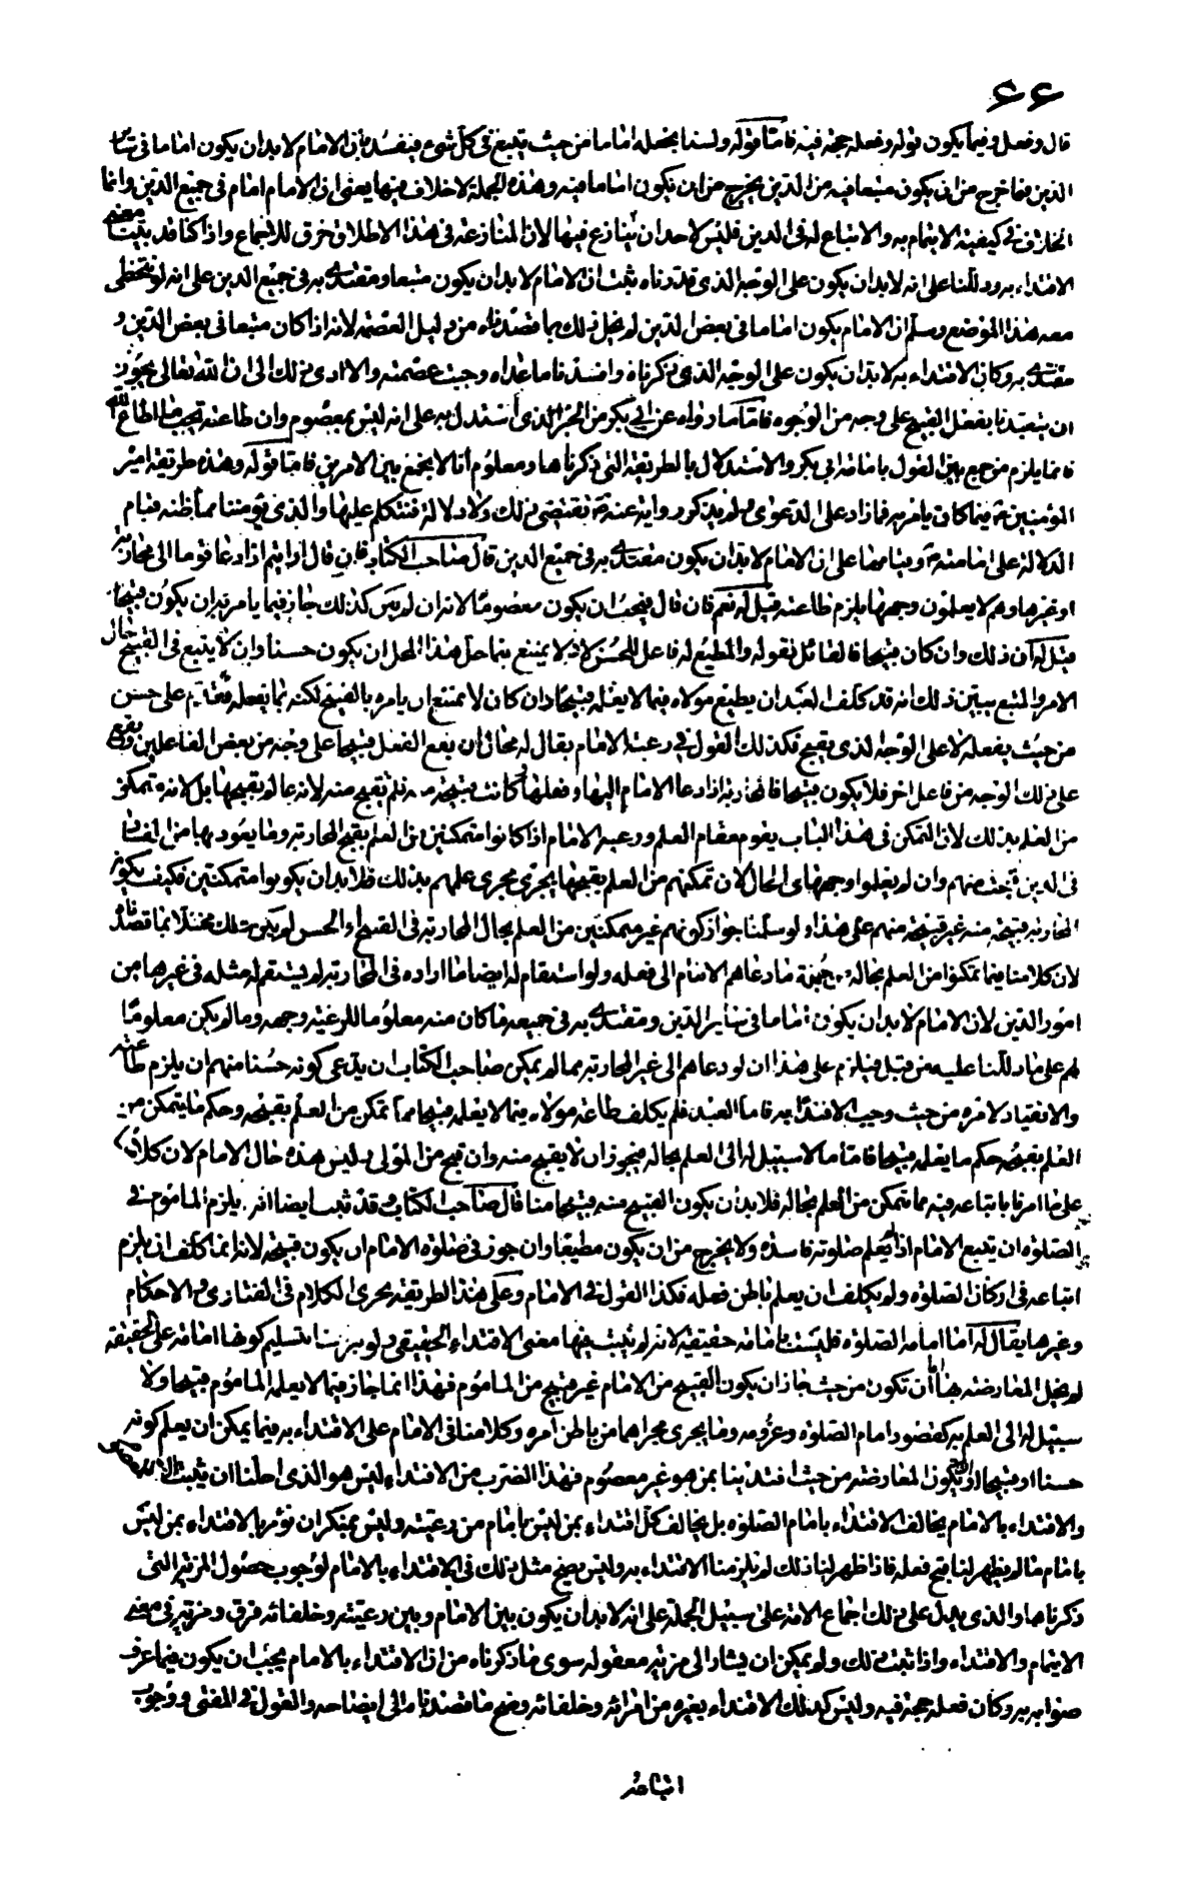 ۶۶
قال وفعل وفيما يكون قوله وفعله حجة فيه فامّا قوله ولسنا نجعله اماما من حيث يتبع في كلّ شيء فيفسد بانّ الامام لا بد ان يكون اماما في سائر
الدين وما خرج من ان يكون متبعا فيه من الدين يخرج من ان يكون اماما فيه وهذه الجملة لا خلاف فيها يعني ان الامام امام في جميع الدين وانما
الخلاف في كيفية الايتمام به والاتباع له في الدين فليس لاحد ان ينازع فيها لان المنازعة في هذا الاطلاق خرق للاجماع واذا كنا قد بيّنا معنى
الاقتداء به ودللنا على انه لا بد ان يكون على الوجه الذي قدرناه ثبت ان الامام لا بد ان يكون متبعا ومقتدى به في جميع الدين على انه لو تخطى
معه هذا الموضع وسلم ان الامام يكون اماما في بعض الدين لم يخل ذلك بما قصدناه من دليل العصمة لانه اذا كان متبعا في بعض الدين و
مقتدى به وكان الاقتداء به لا بد ان يكون على الوجه الذي ذكرناه وافسدنا ما عداه وجبت عصمته والا ادى ذلك الى ان الله تعالى يجوز
ان يتعبدنا بفعل القبيح على وجه من الوجوه فامّا ما رواه عن ابي بكر من الخبر الذي استدل به على انه ليس بمعصوم وان طاعته تجب ما اطاع الله
فانما يلزم من جمع بين القول بامامة ابي بكر والاستدلال بالطريقة التي ذكرناها ومعلوم انا لا نجمع بين الامرين فامّا قوله وهذه طريقة امير
المؤمنين ع فيما كان يامر به فما زاد على الدعوى ولم يذكر رواية عنه ع تقتضي ذلك ولا دلالة فنتكلم عليها والذي يؤمننا مما ظنه قيام
الدلالة على امامته ع وبنا معنا على ان الامام لا بد ان يكون مقتدى به في جميع الدين قال صاحب الكتاب فان قال ارايتم اذا دعا قوما الى محاربة
او غيرها وهم لا يعلمون وجهها يلزم طاعته قيل له نعم فان قال فيجب ان يكون معصوما لانه ان لم يكن كذلك جاز فيما يامر به ان يكون قبيحا
قيل له ان ذلك وان كان قبيحا فالقائل بقوله والمطيع له فاعل للحسن لانه لا يمتنع فيما حل هذا المحل ان يكون حسنا وان لا يتبع في القبيح حال
الامر والمتبع يبين ذلك انه قد كلف العبد ان يطيع مولاه فيما لا يعلمه قبيحا وان كان لا يمتنع ان يامره بالقبيح لكنه بما يفعله مقدم على حسن
من حيث يفعله لا على الوجه الذي يقبح فكذلك القول في رعية الامام يقال له محال ان يقع الفعل قبيحا على وجه من بعض الفاعلين ويقع
على ذلك الوجه من فاعل اخر فلا يكون قبيحا فالمحاربة اذا دعا الامام اليها وفعلها وكانت قبيحة منه فلم تقبح منه لانه عالم بقبحها بل لانه متمكن
من العلم بذلك لان التمكن في هذا الباب يقوم مقام العلم ورعية الامام اذا كانوا متمكنين من العلم بقبح المحاربة وما يعود بها من الفساد
في الدين قبحت منهم وان لم يعلموا وجهها في الحال لان تمكنهم من العلم بقبحها يجري مجرى علمهم بذلك فلا بد ان يكونوا متمكنين فكيف يكون
المحاربة قبيحة منه غير قبيحة منهم على هذا ولو سلمنا جواز كونهم غير متمكنين من العلم بحال المحاربة في القبح والحسن لم يكن ذلك مخلا بما قصدناه
لان كلامنا فيما تمكنوا من العلم بحاله من جملة ما دعاهم الامام الى فعله ولو استقام له ايضا ما اراده في المحاربة لم يستقم له مثله في غيرها من
امور الدين لان الامام لا بد ان يكون اماما في سائر الدين ومقتدى به في جميعه ما كان منه معلوما للرعية وجهه وما لم يكن معلوما
لهم على ما دللنا عليه من قبل فيلزم على هذا ان لو دعاهم الى غير المحاربة مما لم يمكن صاحب الكتاب ان يدعي كونه حسنا منهم ان يلزم طاعته
والانقياد لامره من حيث وجب الاقتداء به فامّا العبد فلم يكلف طاعة مولاه فيما لا يعلمه قبيحا مما تمكن من العلم بقبحه وحكم ما يتمكن من
العلم بقبحه حكم ما يعلمه قبيحا فامّا ما لا سبيل له الى العلم بحاله فيجوز ان لا يقبح منه وان قبح من المولى وليس هذه حال الامام لان كلامنا
على ما امرنا باتباعه فيه مما نتمكن من العلم بحاله فلا بد ان يكون القبيح منه قبيحا منا قال صاحب الكتاب وقد ثبت ايضا انه يلزم الماموم في
الصلوة ان يتبع الامام اذا لم يعلم صلوته فاسدة ولا يخرج من ان يكون مطيعا وان جوز في صلوة الامام ان يكون قبيحة لانه انما كلف ان يلزم
اتباعه في اركان الصلوة ولم يكلف ان يعلم باطن فعله فكذا القول في الامام وعلى هذا الطريقة يجري الكلام في الفتاوى والاحكام
وغيرها يقال له امّا امامة الصلوة فليست بامامة حقيقية لانه لم يثبت فيها معنى الاقتداء الحقيقي ولو تبرعنا بتسليم كونها امامة على الحقيقة
لم يخل المعارضة بها امّا ان تكون من حيث جاز ان يكون القبيح من الامام غير قبيح من الماموم فهذا انما جاز فيما لا يعلمه الماموم قبيحا ولا
سبيل له الى العلم به كقصود امام الصلوة وعزومه وما يجري مجراهما من باطن امره وكلامنا في الامام على الاقتداء به فيما يمكن ان يعلم كونه
حسنا او قبيحا او تكون المعارضة من حيث اقتدينا بمن هو غير معصوم فهذا الضرب من الاقتداء ليس هو الذي احلنا ان يثبت الا للمعصوم
والاقتداء بالامام يخالف الاقتداء بامام الصلوة بل يخالف كلّ اقتداء بمن ليس بامام من رعيته وليس بمنكر ان نؤمر بالاقتداء بمن ليس
بامام ما لم يظهر لنا قبح فعله فاذا ظهر لنا ذلك لم يلزمنا الاقتداء به وليس يصح مثل ذلك في الاقتداء بالامام لوجوب حصول المزية التي
ذكرناها والذي يدل على ذلك اجماع الامة على سبيل الجملة على انه لا بد ان يكون بين الامام وبين رعيته وخلفائه فرق ومزية في معنى
الايتمام والاقتداء واذا ثبت ذلك ولم يمكن ان يشار الى مزية معقولة سوى ما ذكرناه من ان الاقتداء بالامام يجب ان يكون فيما عرف
صوابه به وكان فعله حجة فيه وليس كذلك الاقتداء بغيره من امرائه وخلفائه وضح ما قصدنا الى ايضاحه والقول في المفتي ووجوب
اتباعه